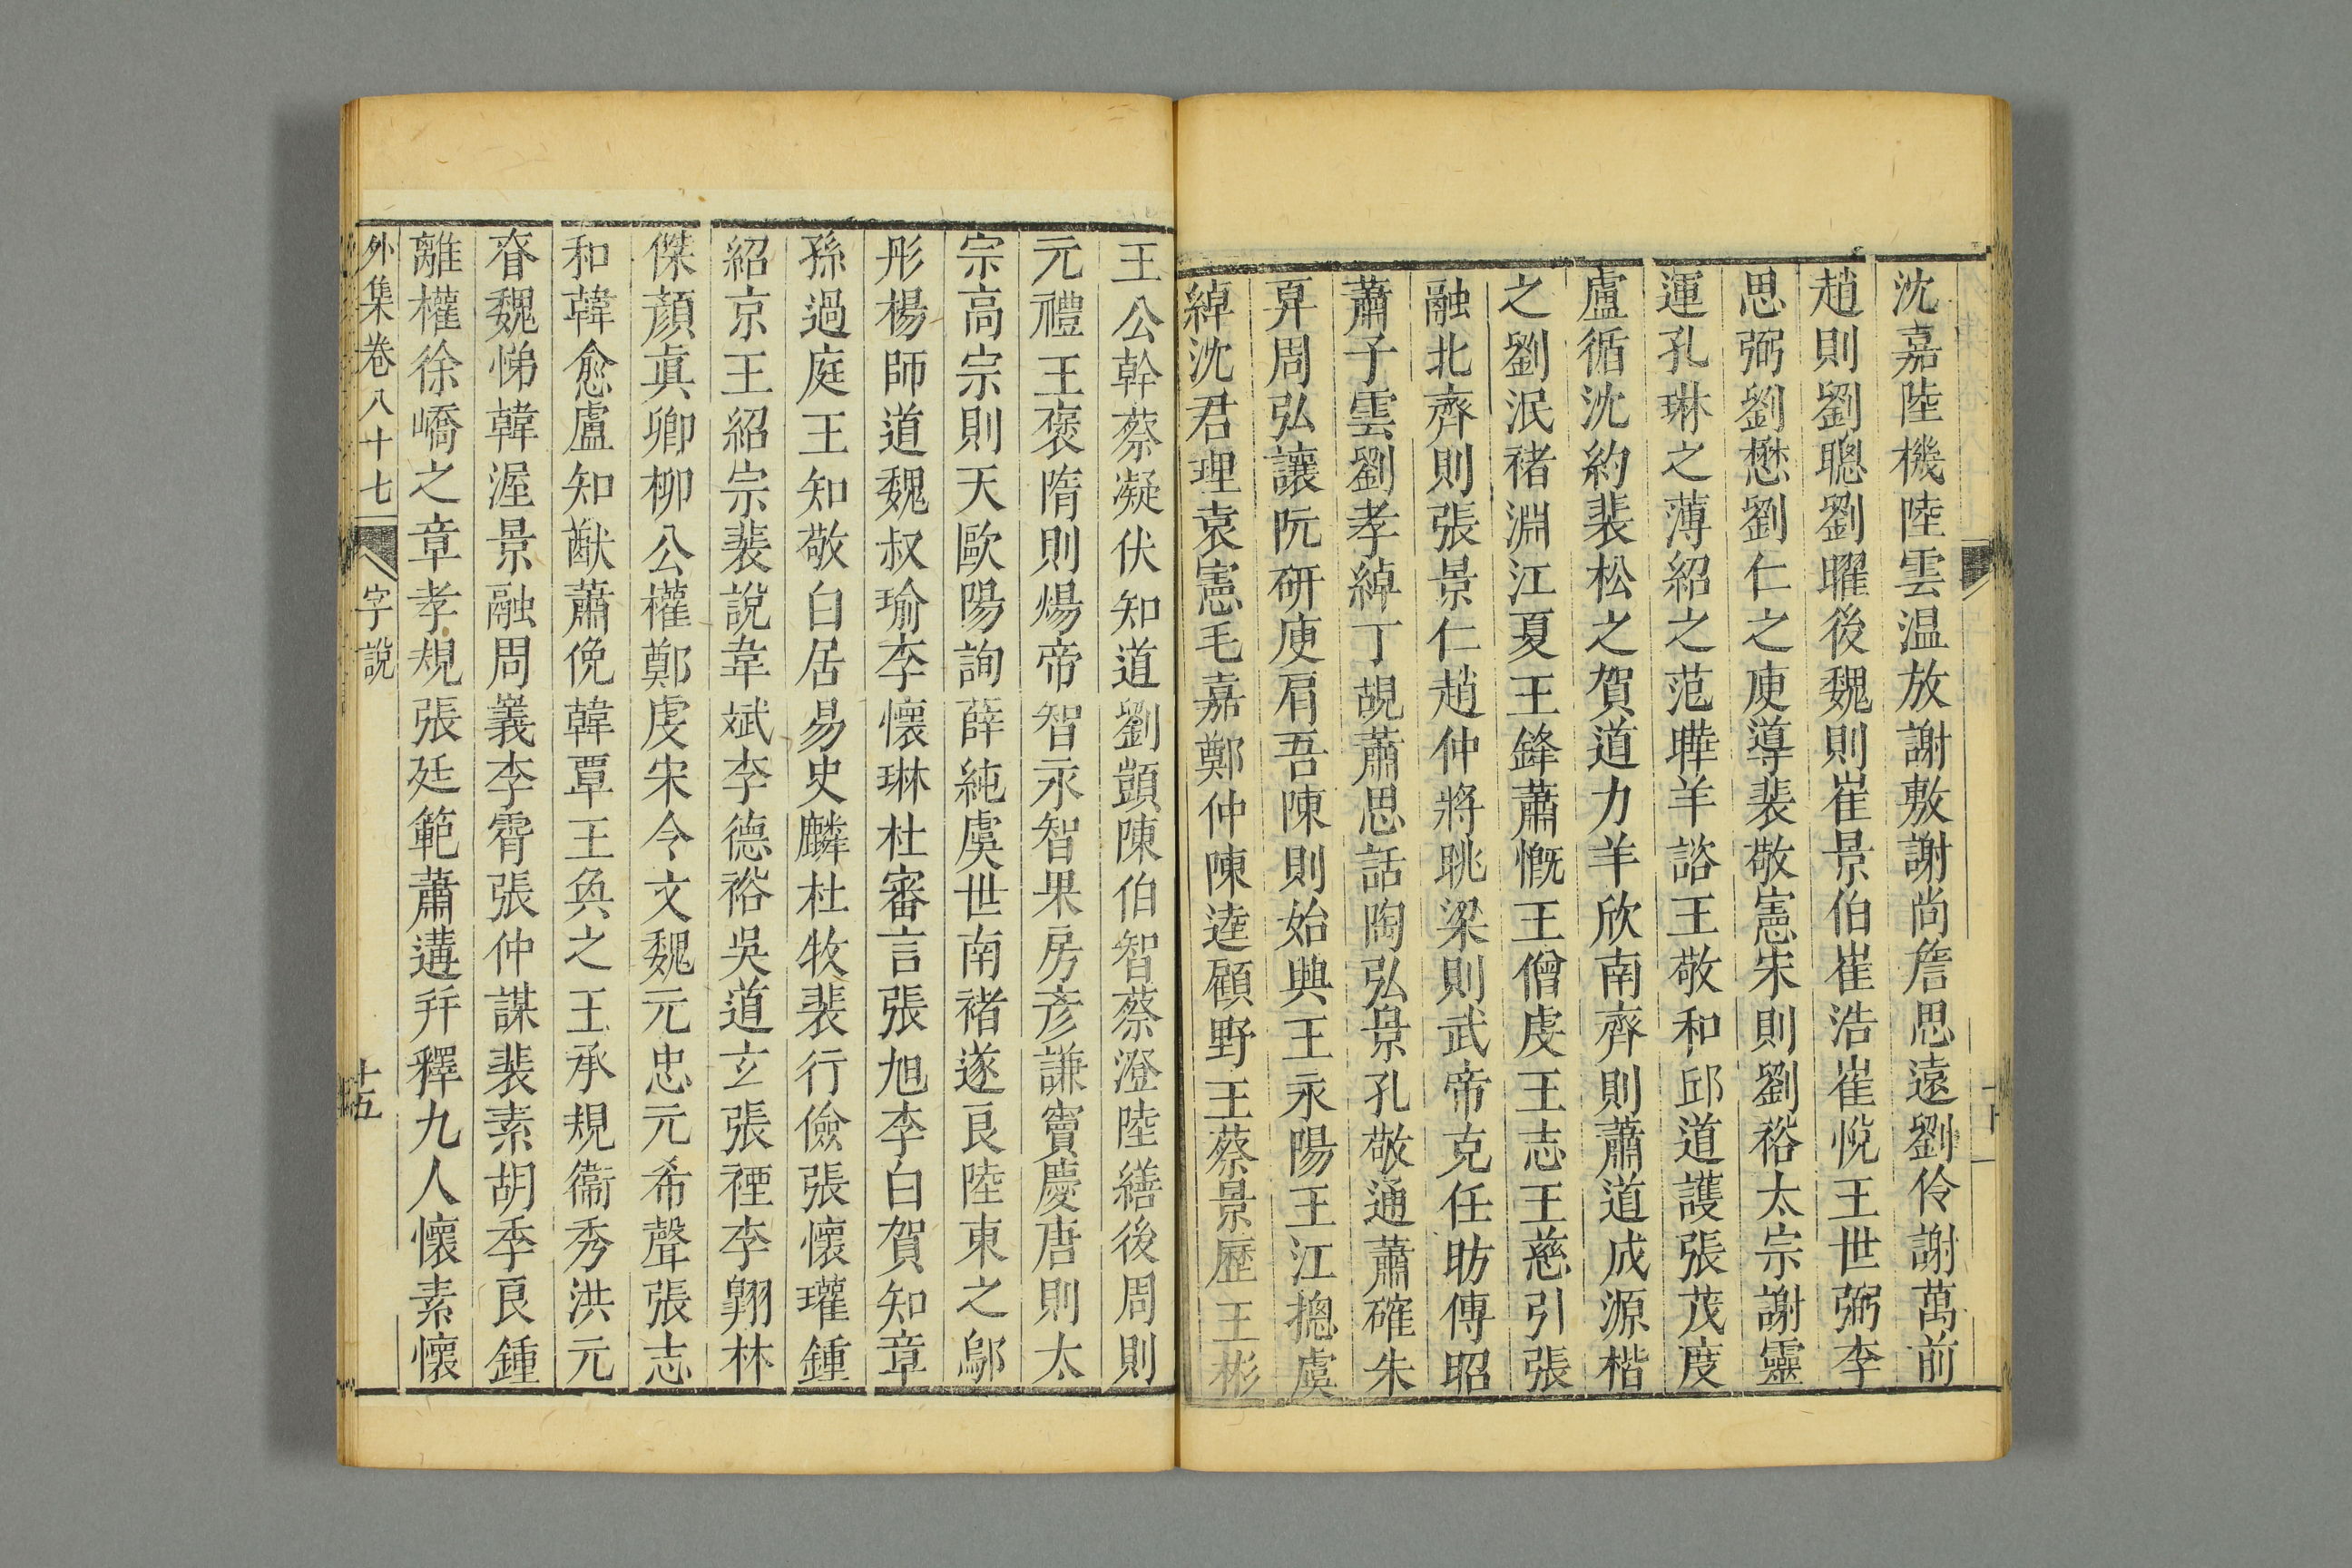 沈嘉陸機陸雲温放謝敷謝尚詹思遠劉伶謝萬前
趙則劉聰劉曜後魏則崔景伯崔浩崔悅王世弼李
思弼劉懋劉仁之庾導裴敬憲宋則劉裕太宗謝靈
運孔琳之薄紹之范曄羊諮王敬和邱道護張茂度
盧循沈約裴松之賀道力羊欣南齊則蕭道成源楷
之劉泯褚淵江夏王鋒蕭慨王僧虔王志王慈引張
融北齊則張景仁趙仲將眺梁則武帝克任昉傅昭
蕭子雲劉孝綽丁覘蕭思話陶弘景孔敬通蕭確朱
异周弘讓阮研庾肩吾陳則始興王永陽王江摠虞
綽沈君理袁憲毛嘉鄭仲陳逵顧野王蔡景歷王彬
王公幹蔡凝伏知道劉顗陳伯智蔡澄陸繕後周則
元禮王褒隋則煬帝智永智果房彥謙竇慶唐則太
宗高宗則天歐陽詢薛純虞世南褚遂良陸東之鄔
彤楊師道魏叔瑜李懷琳杜審言張旭李白賀知章
孫過庭王知敬白居易史麟杜牧裴行儉張懷瓘鍾
紹京王紹宗裴說韋斌李德裕吳道玄張禋李翱林
傑顏真卿柳公權鄭虔宋令文魏元忠元希聲張志
和韓愈盧知猷蕭俛韓覃王奐之王承規衞秀洪元
眘魏悌韓渥景融周㠖李霄張仲謀裴素胡季良鍾
離權徐嶠之章孝規張廷範蕭遘幷釋九人懷素懷
外集卷八十七 字說 十五